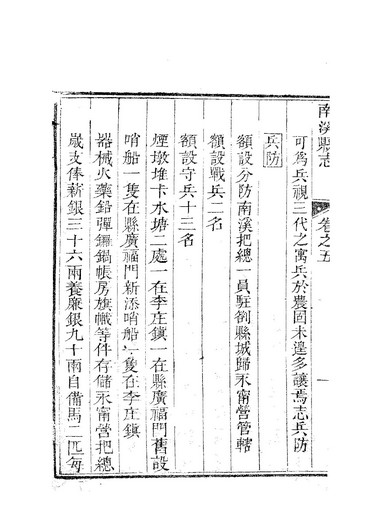 南溪縣志
卷之五
一
可爲兵視三代之寓兵於農固未遑多讓焉志兵防
兵防
額設分防南溪把總一員駐劄縣城歸永甯營管轄
額設戰兵二名
額設守兵十三名
煙墩堆卡水塘二處一在李庄鎮一在縣廣福門舊設
哨船一隻在縣廣福門新添哨船一隻在李庄鎮
器械火藥鉛彈鑼鍋帳房旗幟等件存儲永甯營把總
歲支俸薪銀三十六兩養廉銀九十兩自備馬二匹每